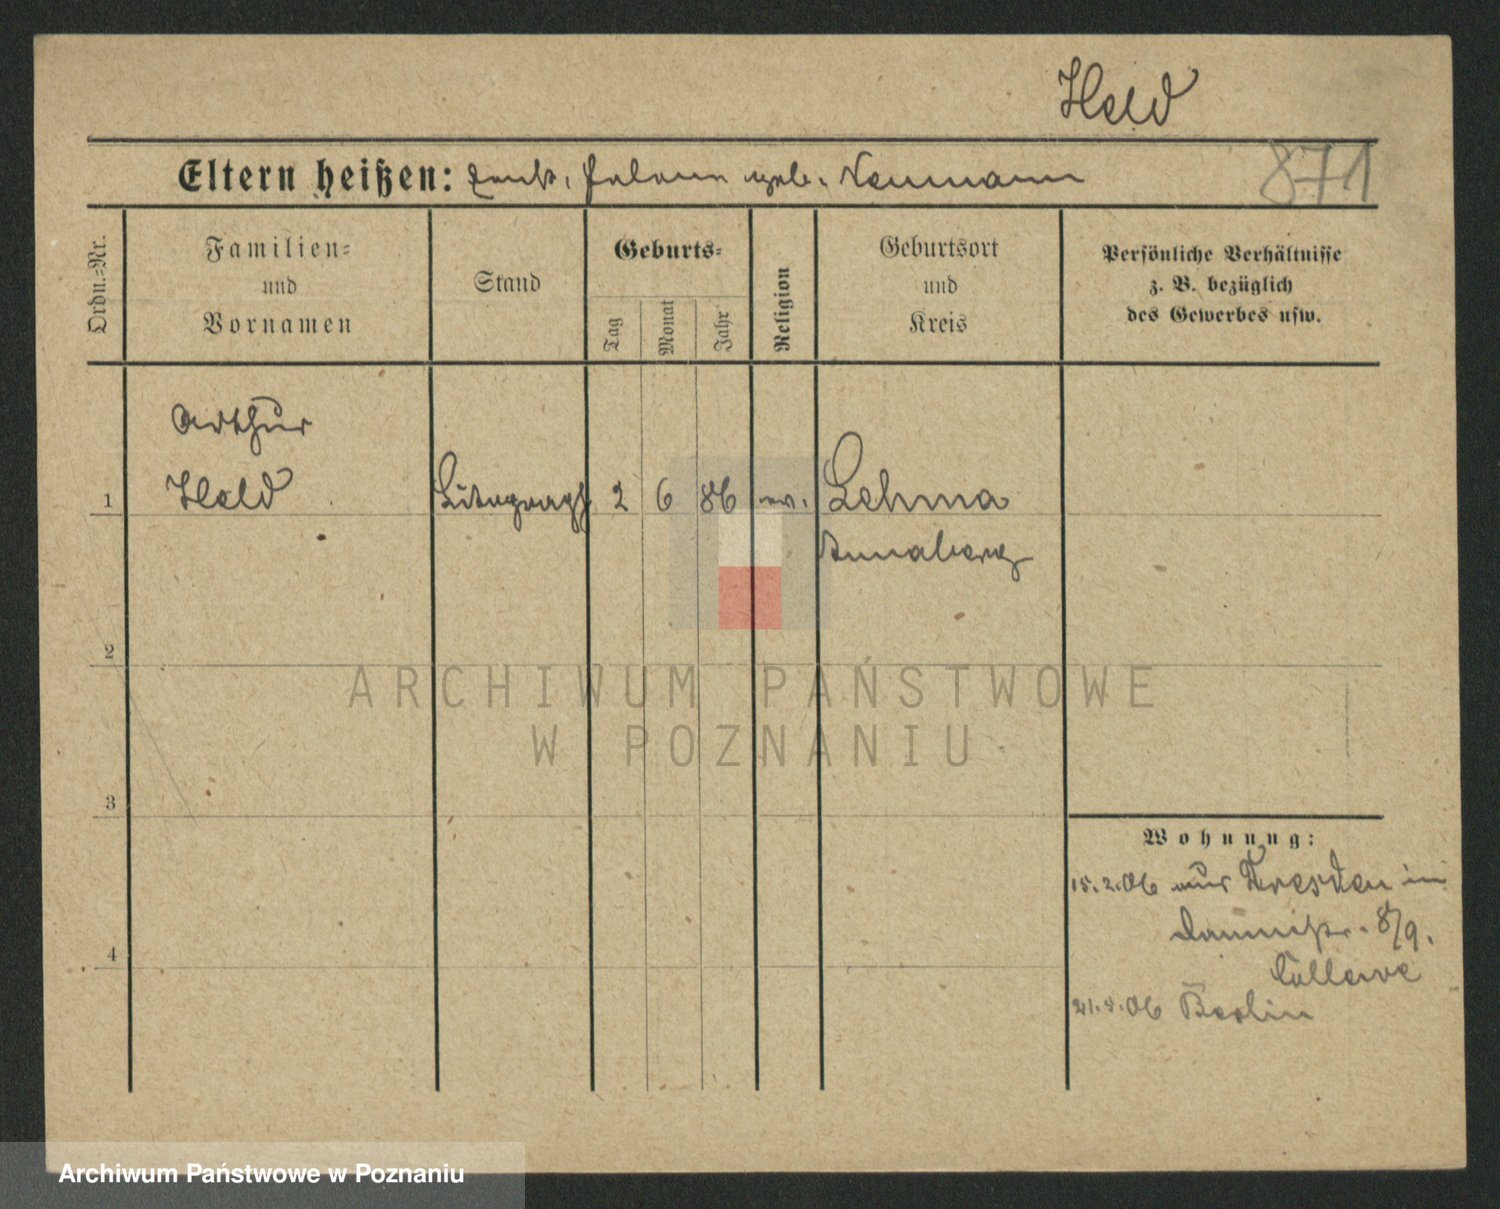 Held
871
Eltern heißen: geb. Neumann
Ordn.-Nr.
Familien-
und
Vornamen
Stand
Geburts-
Tag
Monat
Jahr
Religion
Geburtsort
und
Kreis
Persönliche Verhältnisse
z. B. bezüglich
des Gewerbes usw.
Arthur
1 Held Litograph 2 6 86 ev. Lehma
Annaberg
2
3
4
Wohnung:
15.2.06 aus Dresden in
8/9.
21.4.06 Berlin
ARCHIWUM PAŃSTWOWE
W POZNANIU
Archiwum Państwowe w Poznaniu